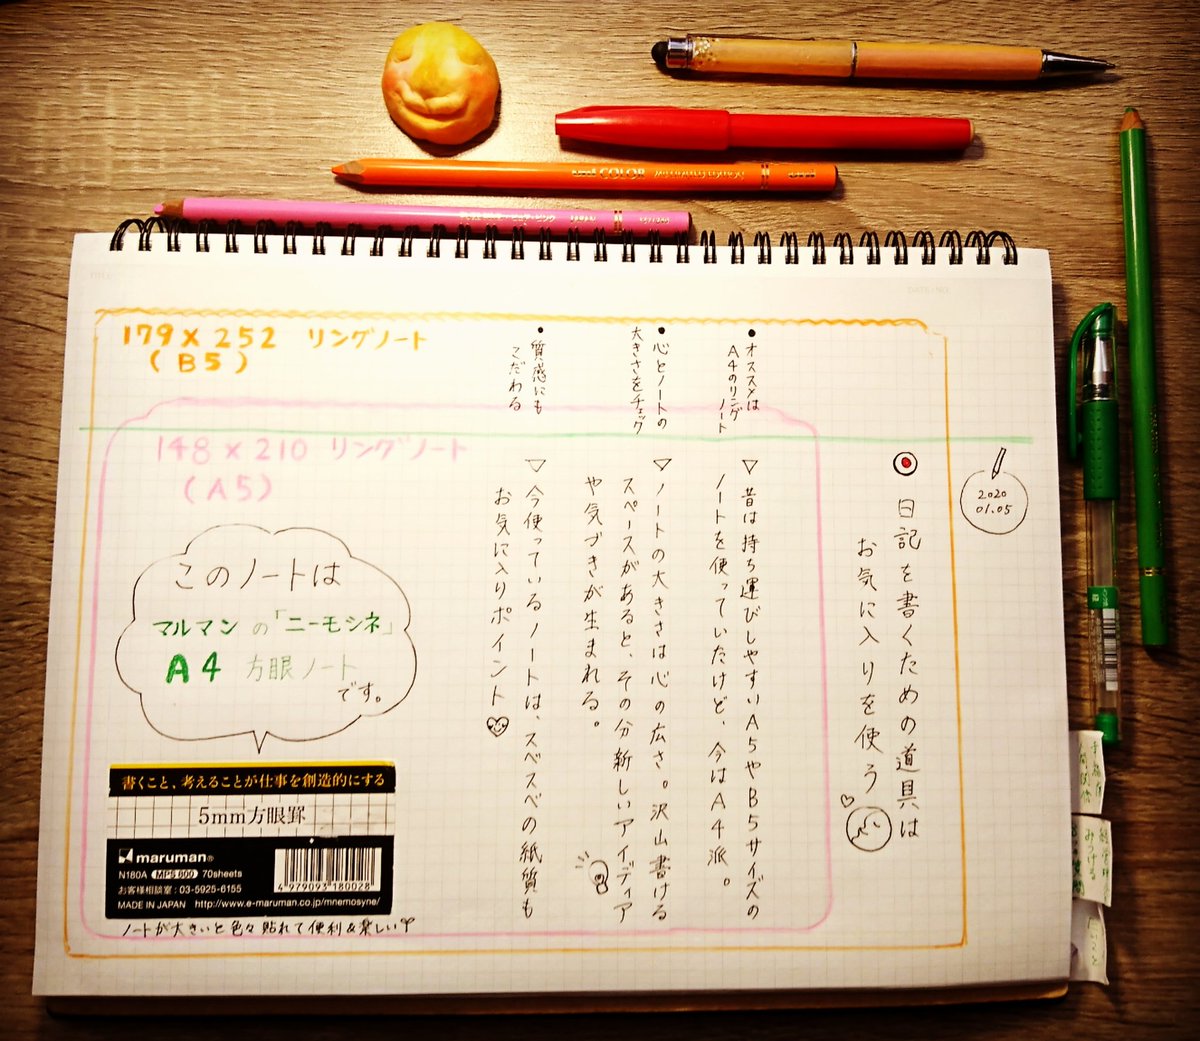 uni COLOR
uni
DATE/NO.
2020
01.05
日記を書くための道具は
お気に入りを使う
●オススメは
A4のリング
ノート
▽昔は持ち運びしやすいA5やB5サイズの
ノートを使っていたけど、今はA4派。
●心とノートの
大きさをチェック
▽ノートの大きさは心の広さ。沢山書ける
スペースがあると、その分新しいアイディア
や気づきが生まれる。
●質感にも
こだわる
▽今使っているノートは、スベスベの紙質も
お気に入りポイント
179×252 リングノート
(B5)
148×210 リングノート
(A5)
このノートは
マルマンの「ニーモシネ」
A4 方眼ノート
です。
書くこと、考えることが仕事を創造的にする
5mm方眼罫
maruman®
N180A MPS 600 70sheets
お客様相談室:03-5925-6155
MADE IN JAPAN http://www.e-maruman.co.jp/mnemosyne/
4 979093 180028
ノートが大きいと色々貼れて便利&楽しい